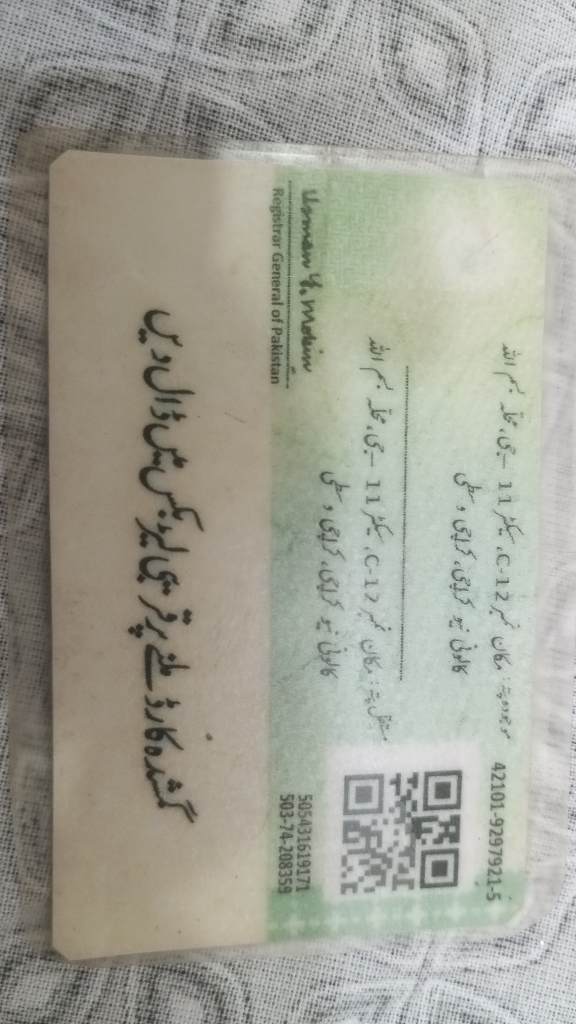 42101-9297921-5
موجودہ پتہ: مکان نمبر C-12، سیکٹر 11 - جی، محلہ بسم اللہ
کالونی نیو کراچی، کراچی وسطی
مستقل پتہ: مکان نمبر C-12، سیکٹر 11 - جی، محلہ بسم اللہ
کالونی نیو کراچی، کراچی وسطی
505431619171
503-74-208359
Usman Y. Mobin
Registrar General of Pakistan
گمشدہ کارڈ ملنے پر قریبی لیٹر بکس میں ڈال دیں